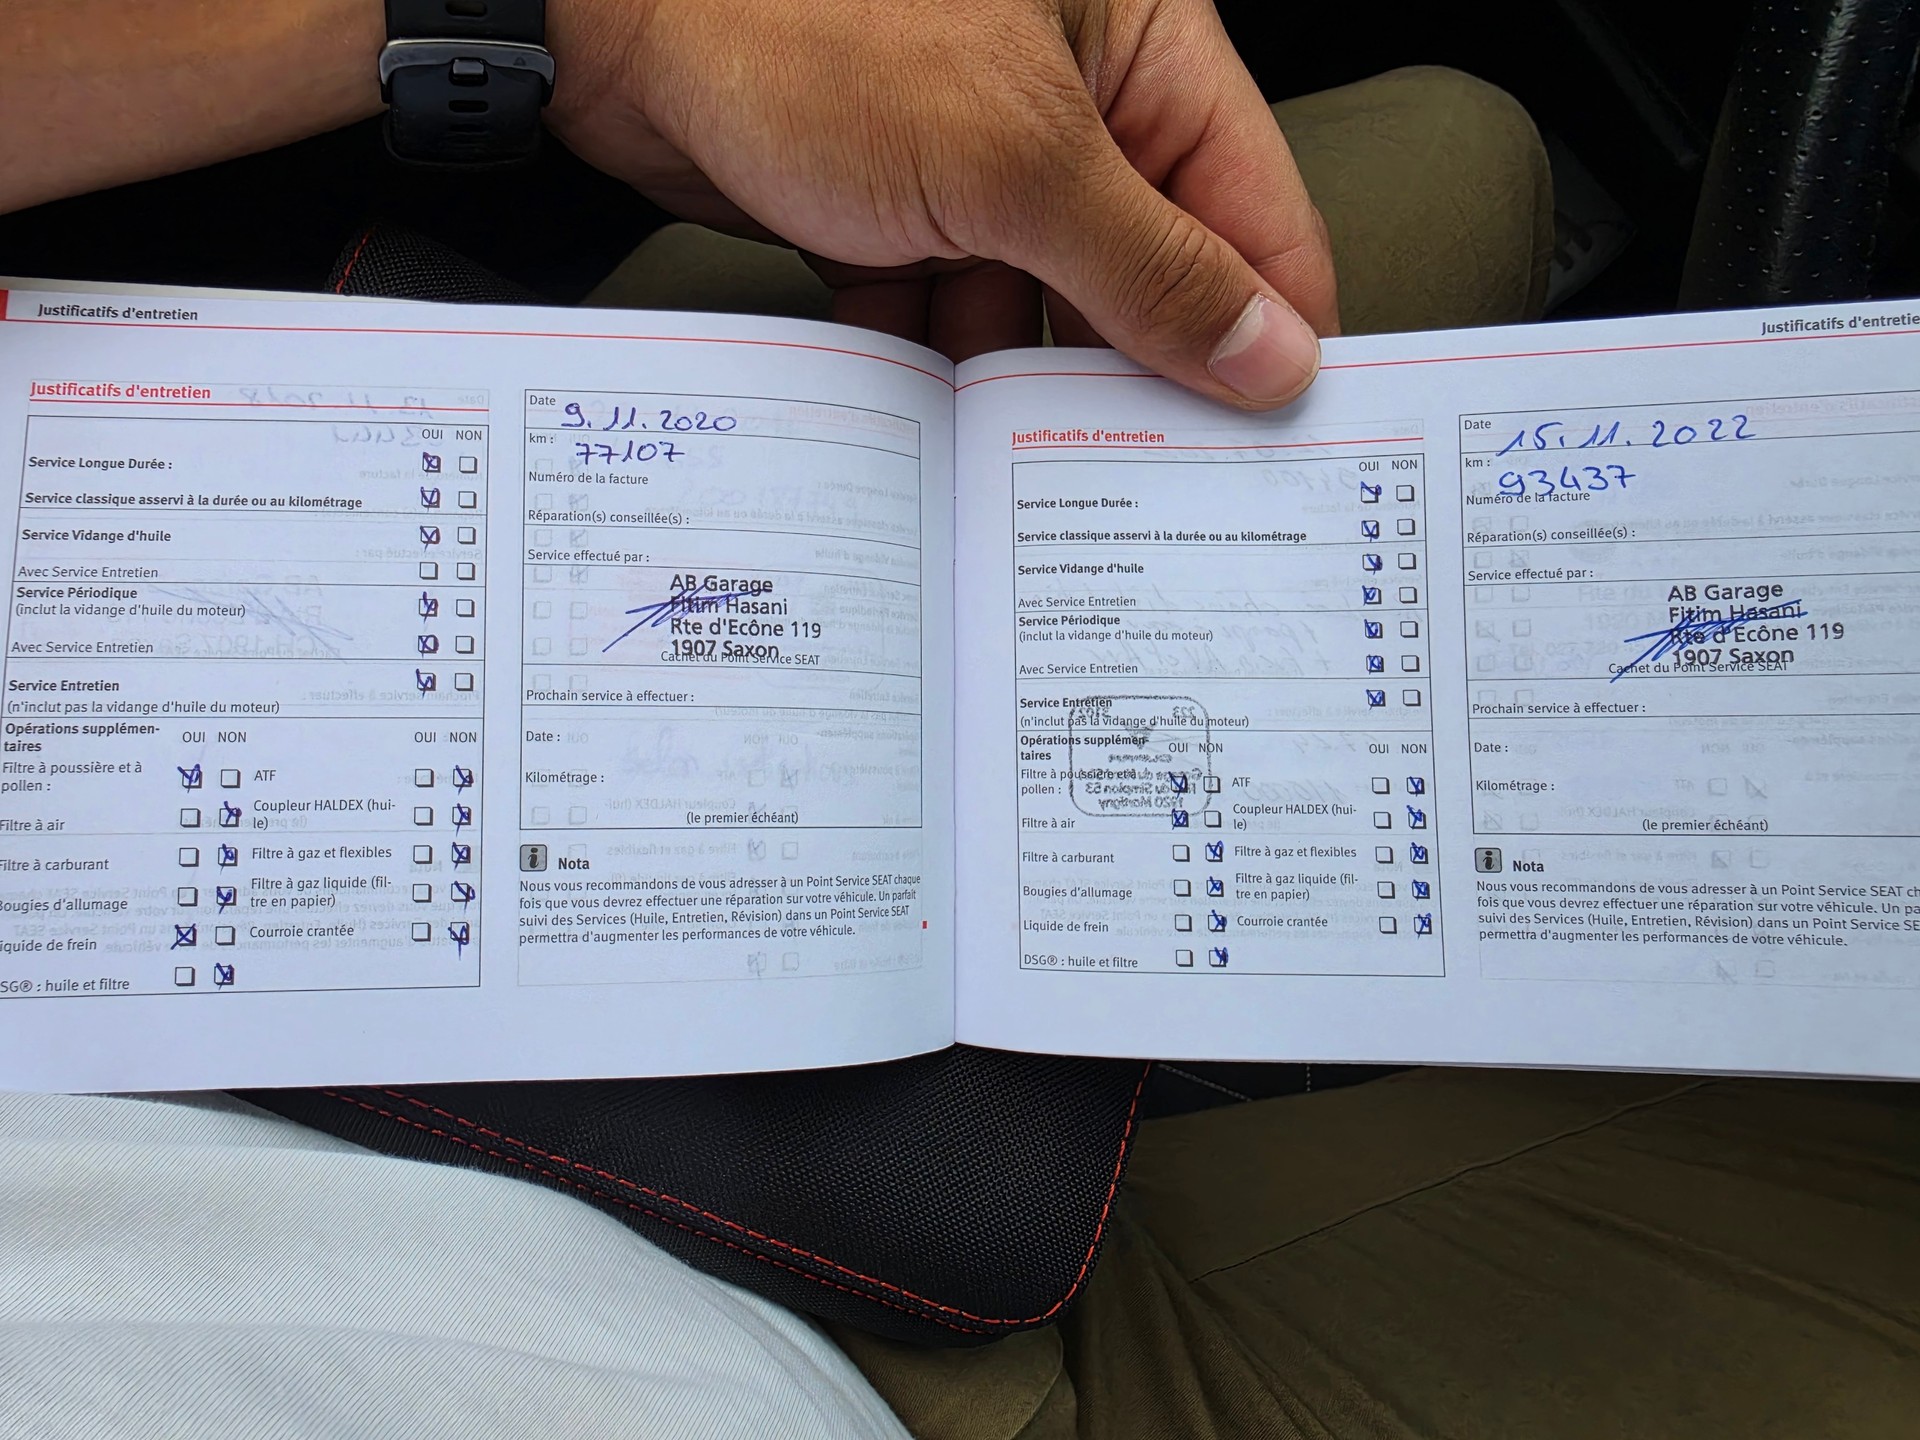 Justificatifs d'entretien
Justificatifs d'entretien
OUI NON
Service Longue Durée :
Service classique asservi à la durée ou au kilométrage
Service Vidange d'huile
Avec Service Entretien
Service Périodique
(inclut la vidange d'huile du moteur)
Avec Service Entretien
Service Entretien
(n'inclut pas la vidange d'huile du moteur)
Opérations supplémen-
taires
OUI NON
OUI NON
Filtre à poussière et à
pollen :
ATF
Filtre à air
Coupleur HALDEX (hui-
le)
Filtre à carburant
Filtre à gaz et flexibles
Bougies d'allumage
Filtre à gaz liquide (fil-
tre en papier)
iquide de frein
Courroie crantée
SG® : huile et filtre
Date
9.11.2020
km :
77107
Numéro de la facture
Réparation(s) conseillée(s) :
Service effectué par :
AB Garage
Fitim Hasani
Rte d'Ecône 119
1907 Saxon
Cachet du Point Service SEAT
Prochain service à effectuer :
Date :
Kilométrage :
(le premier échéant)
Nota
Nous vous recommandons de vous adresser à un Point Service SEAT chaque
fois que vous devrez effectuer une réparation sur votre véhicule. Un parfait
suivi des Services (Huile, Entretien, Révision) dans un Point Service SEAT
permettra d'augmenter les performances de votre véhicule.
Justificatifs d'entretie
Justificatifs d'entretien
OUI NON
Service Longue Durée :
Service classique asservi à la durée ou au kilométrage
Service Vidange d'huile
Avec Service Entretien
Service Périodique
(inclut la vidange d'huile du moteur)
Avec Service Entretien
Service Entretien
(n'inclut pas la vidange d'huile du moteur)
Opérations supplémen-
taires
OUI NON
OUI NON
Filtre à poussière et à
pollen :
ATF
Filtre à air
Coupleur HALDEX (hui-
le)
Filtre à carburant
Filtre à gaz et flexibles
Bougies d'allumage
Filtre à gaz liquide (fil-
tre en papier)
Liquide de frein
Courroie crantée
DSG® : huile et filtre
Date
15.11.2022
km :
93437
Numéro de la facture
Réparation(s) conseillée(s) :
Service effectué par :
AB Garage
Fitim Hasani
Rte d'Ecône 119
1907 Saxon
Cachet du Point Service SEAT
Prochain service à effectuer :
Date :
Kilométrage :
(le premier échéant)
Nota
Nous vous recommandons de vous adresser à un Point Service SEAT ch
fois que vous devrez effectuer une réparation sur votre véhicule. Un pa
suivi des Services (Huile, Entretien, Révision) dans un Point Service SE
permettra d'augmenter les performances de votre véhicule.